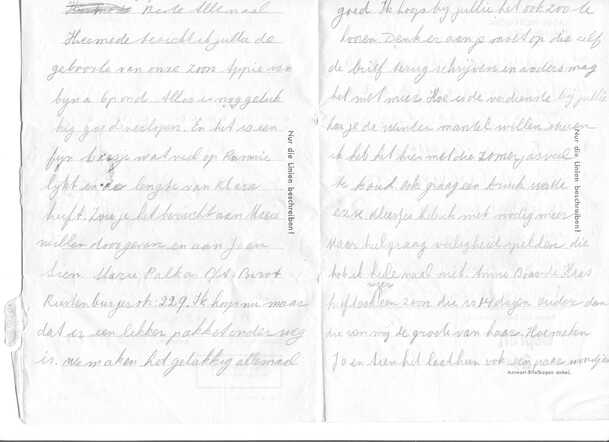 Beste Allemaal
Hiermede bericht ik jullie de
geboorte van onze zoon Appie van
byna 6 pond. Alles is nog geluk
kig goed verlopen. En het is een
fyn wat veel op Rannie
lykt en de lengte van Klara
heeft. Zou je het bericht aan Meeu
willen doorgeven en aan Jo en
Sien Marie Palka Obl. Birot
Rustenburger str. 229. Ik hoop nu maar
dat er een lekker pakket onder weg
is. We maken het gelukkig allemaal
Nur die Linien beschreiben!
goed. Ik hoop by jullie het ook zoo te
horen. Denk er aan je moet op die zelf
de brief terug schrijven en anders mag
het niet meer. Hoe is de verdienste bij jullie
kan je de winter mantel willen sturen
ik heb het hier met die zomerjas veel
te koud. Ook graag een broek watte
enz. kleertjes heb ik niet nodig meer
Maar heel graag veiligheidspelden die
heb ik hele maal niet. Annie Blae de Haas
heeft ook een zoon die is 14 dagen ouder dan
die van my de groete van haar. Hoe maken
Jo en Sien het laat hun ook een paar woordjes
Nur die Linien beschreiben!
Antwort-Briefbogen anbei.